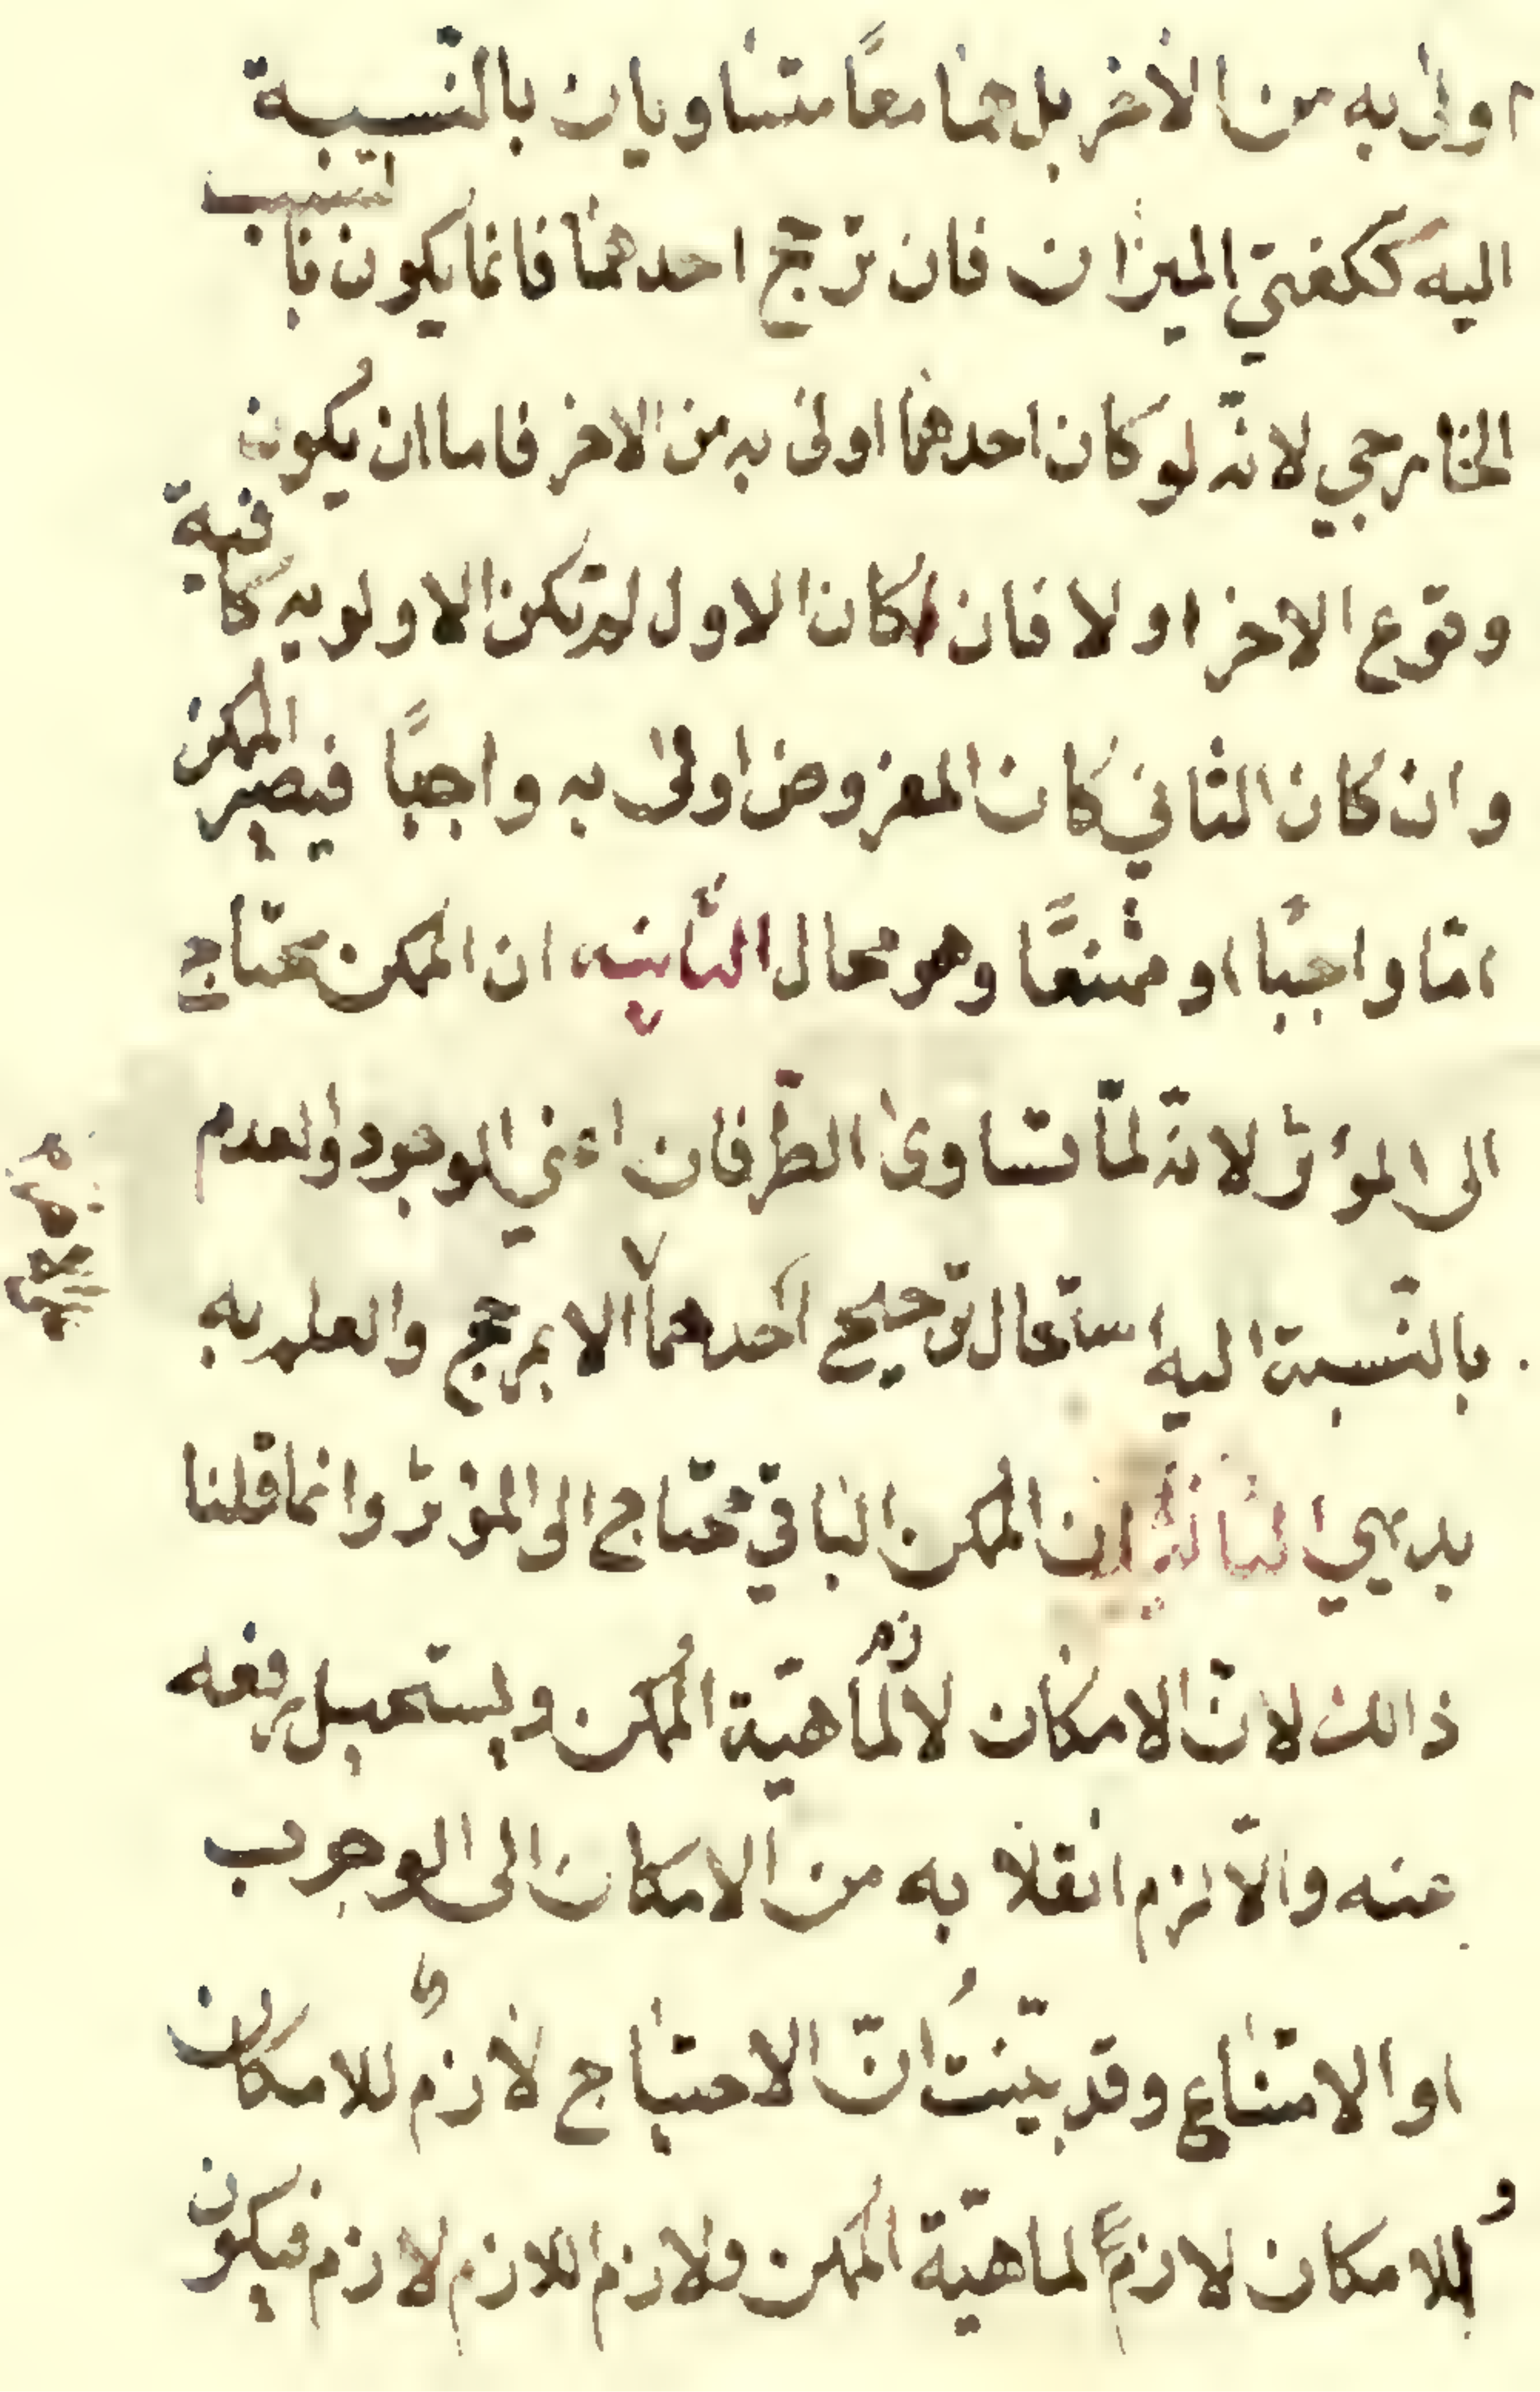 اولى به من الاخر بل هما معًا متساويان بالنّسيبة
اليه ككفتي الميزان فان ترجح احدهما فانما يكون بالسبب
الخارجي لانّه لو كان احدهما اولى به من الاخر فاما ان يكون
وقوع الاخر اولا فان كان الاول لم تكن الاولويه كافية
وان كان الثاني كان المفروض اولى به واجبًا فيصير الممكن
امّا واجبًا او ممتنعًا وهو محال الثّانيه ان الممكن محتاج
الى المؤثر لانّه لمّا تساوى الطّرفان اعني الوجود والعدم
بالنّسبة اليه استحال ترجيح احدهما الا بمرجح والعلم به
بديهي الثالثة ان الممكن الباقي محتاج الى المؤثر وانما قلنا
ذالك لانّ الامكان لازم لماهيّة الممكن ويستحيل رفعه
عنه والّا لزم انقلابه من الامكان الى الوجوب
او الامتناع وقد بيّنتُ انّ الاحتياج لازمٌ للامكان
و للامكان لازمً لماهيّة الممكن ولازم اللازم لازم فيكون